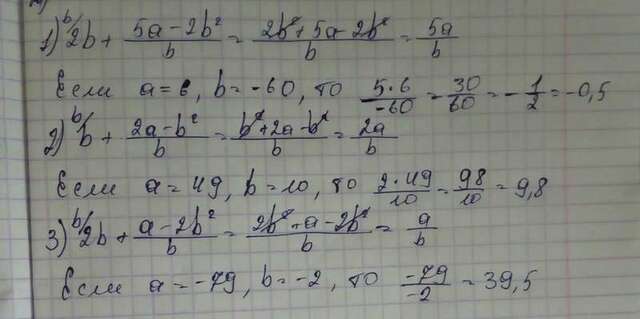 1) 2b + (5a - 2b²)/b = (2b² + 5a - 2b²)/b = 5a/b
Если a = 6, b = -60, то 5·6/-60 = 30/60 = -1/2 = -0,5
2) b + (2a - b²)/b = (b² + 2a - b²)/b = 2a/b
Если a = 49, b = 10, то 2·49/10 = 98/10 = 9,8
3) 2b + (a - 2b²)/b = (2b² + a - 2b²)/b = a/b
Если a = -79, b = -2, то -79/-2 = 39,5